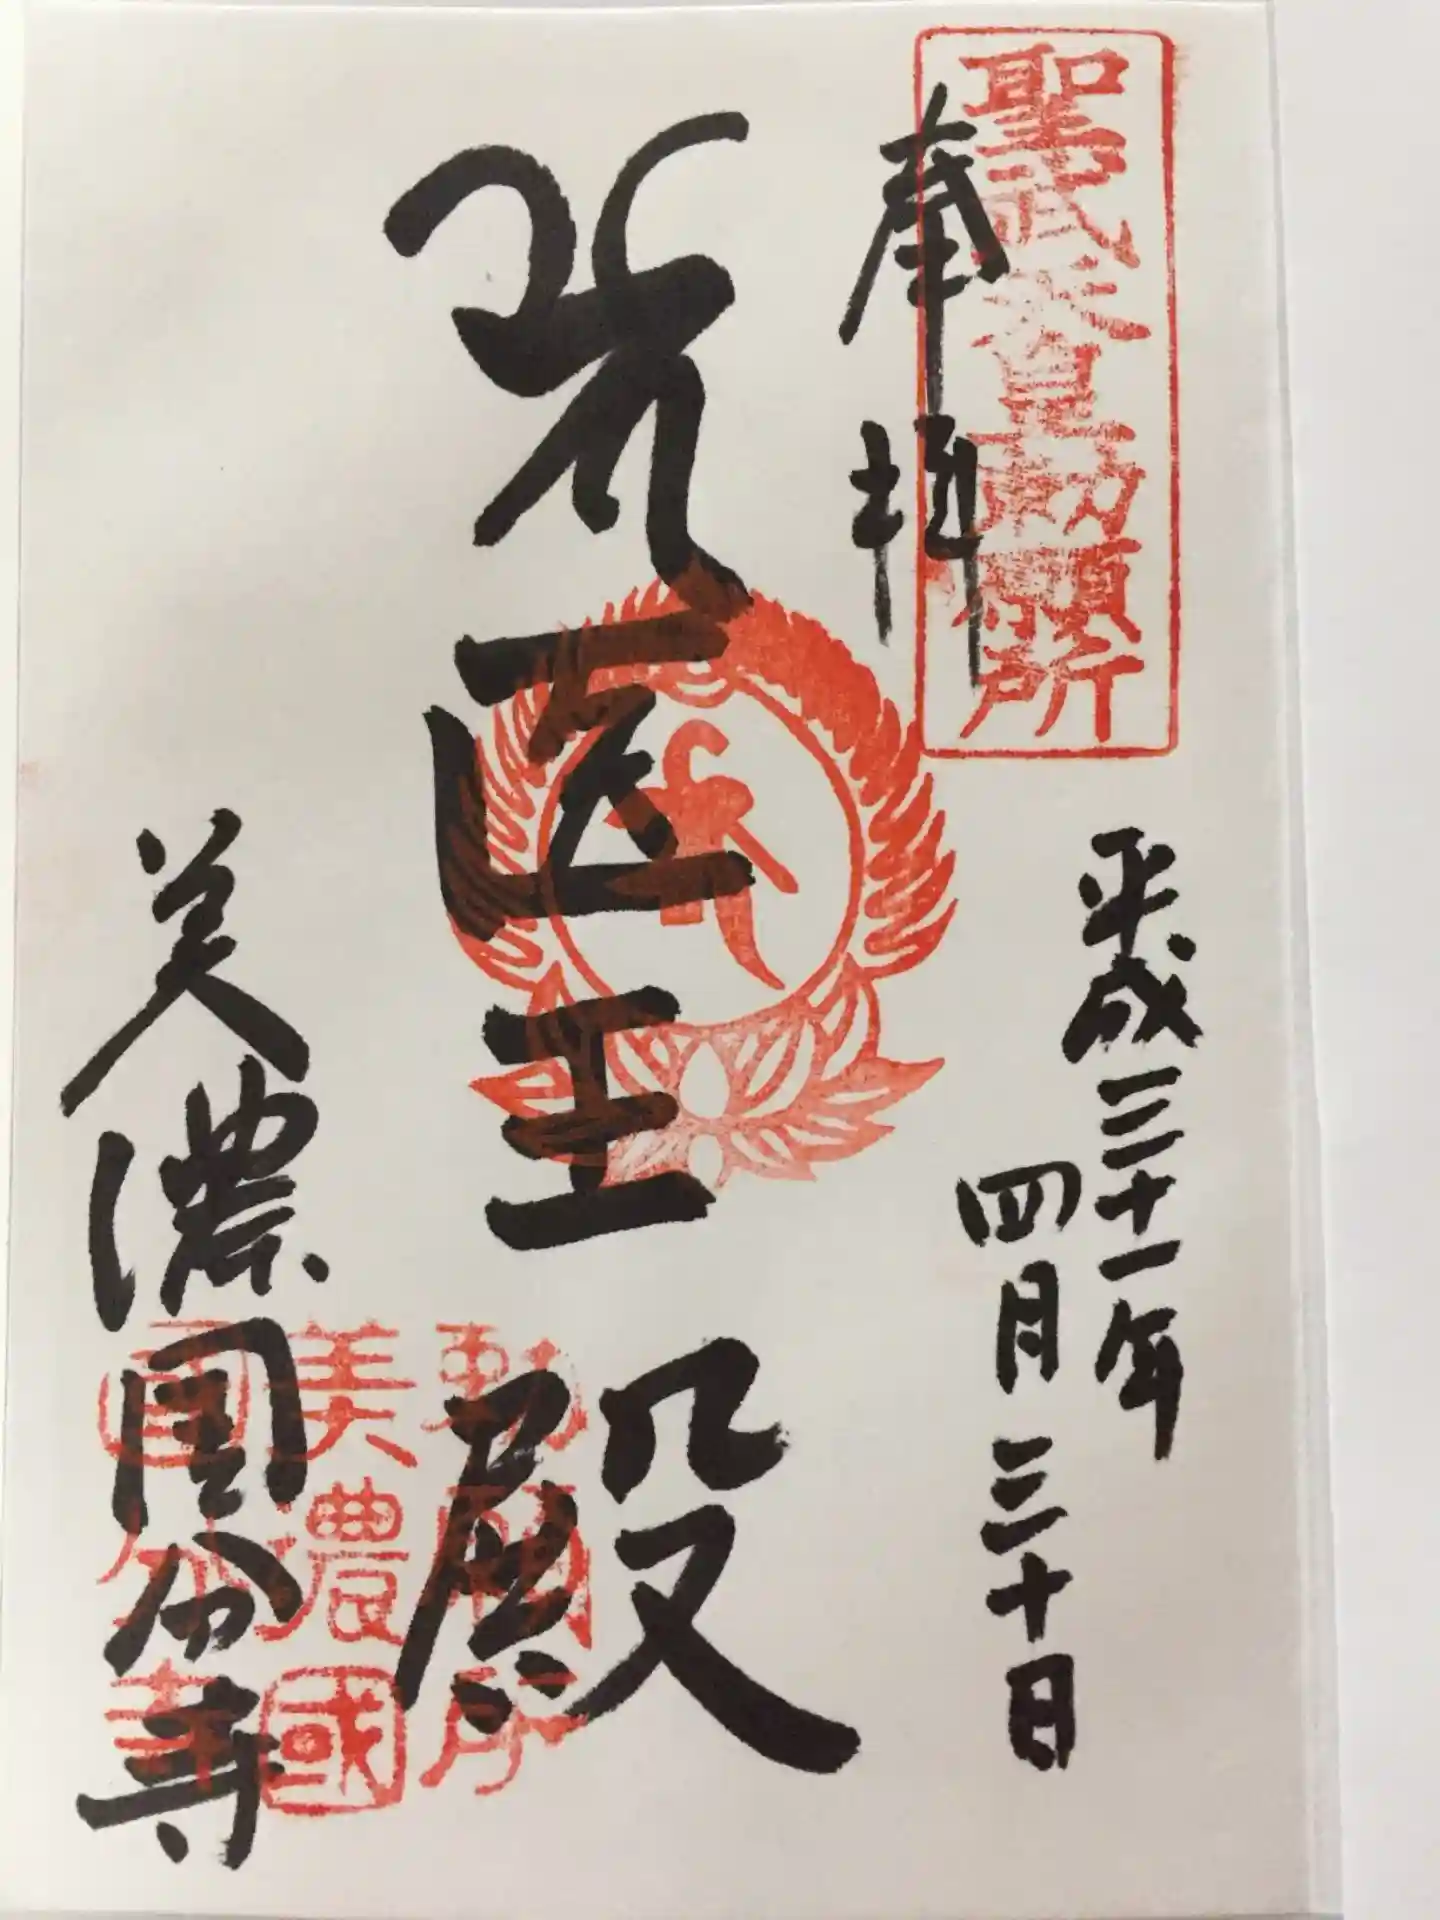 聖武天皇勅願所
奉拝
平成三十一年
四月三十日
医王殿
美濃国分寺
勅願所
美濃國
分寺